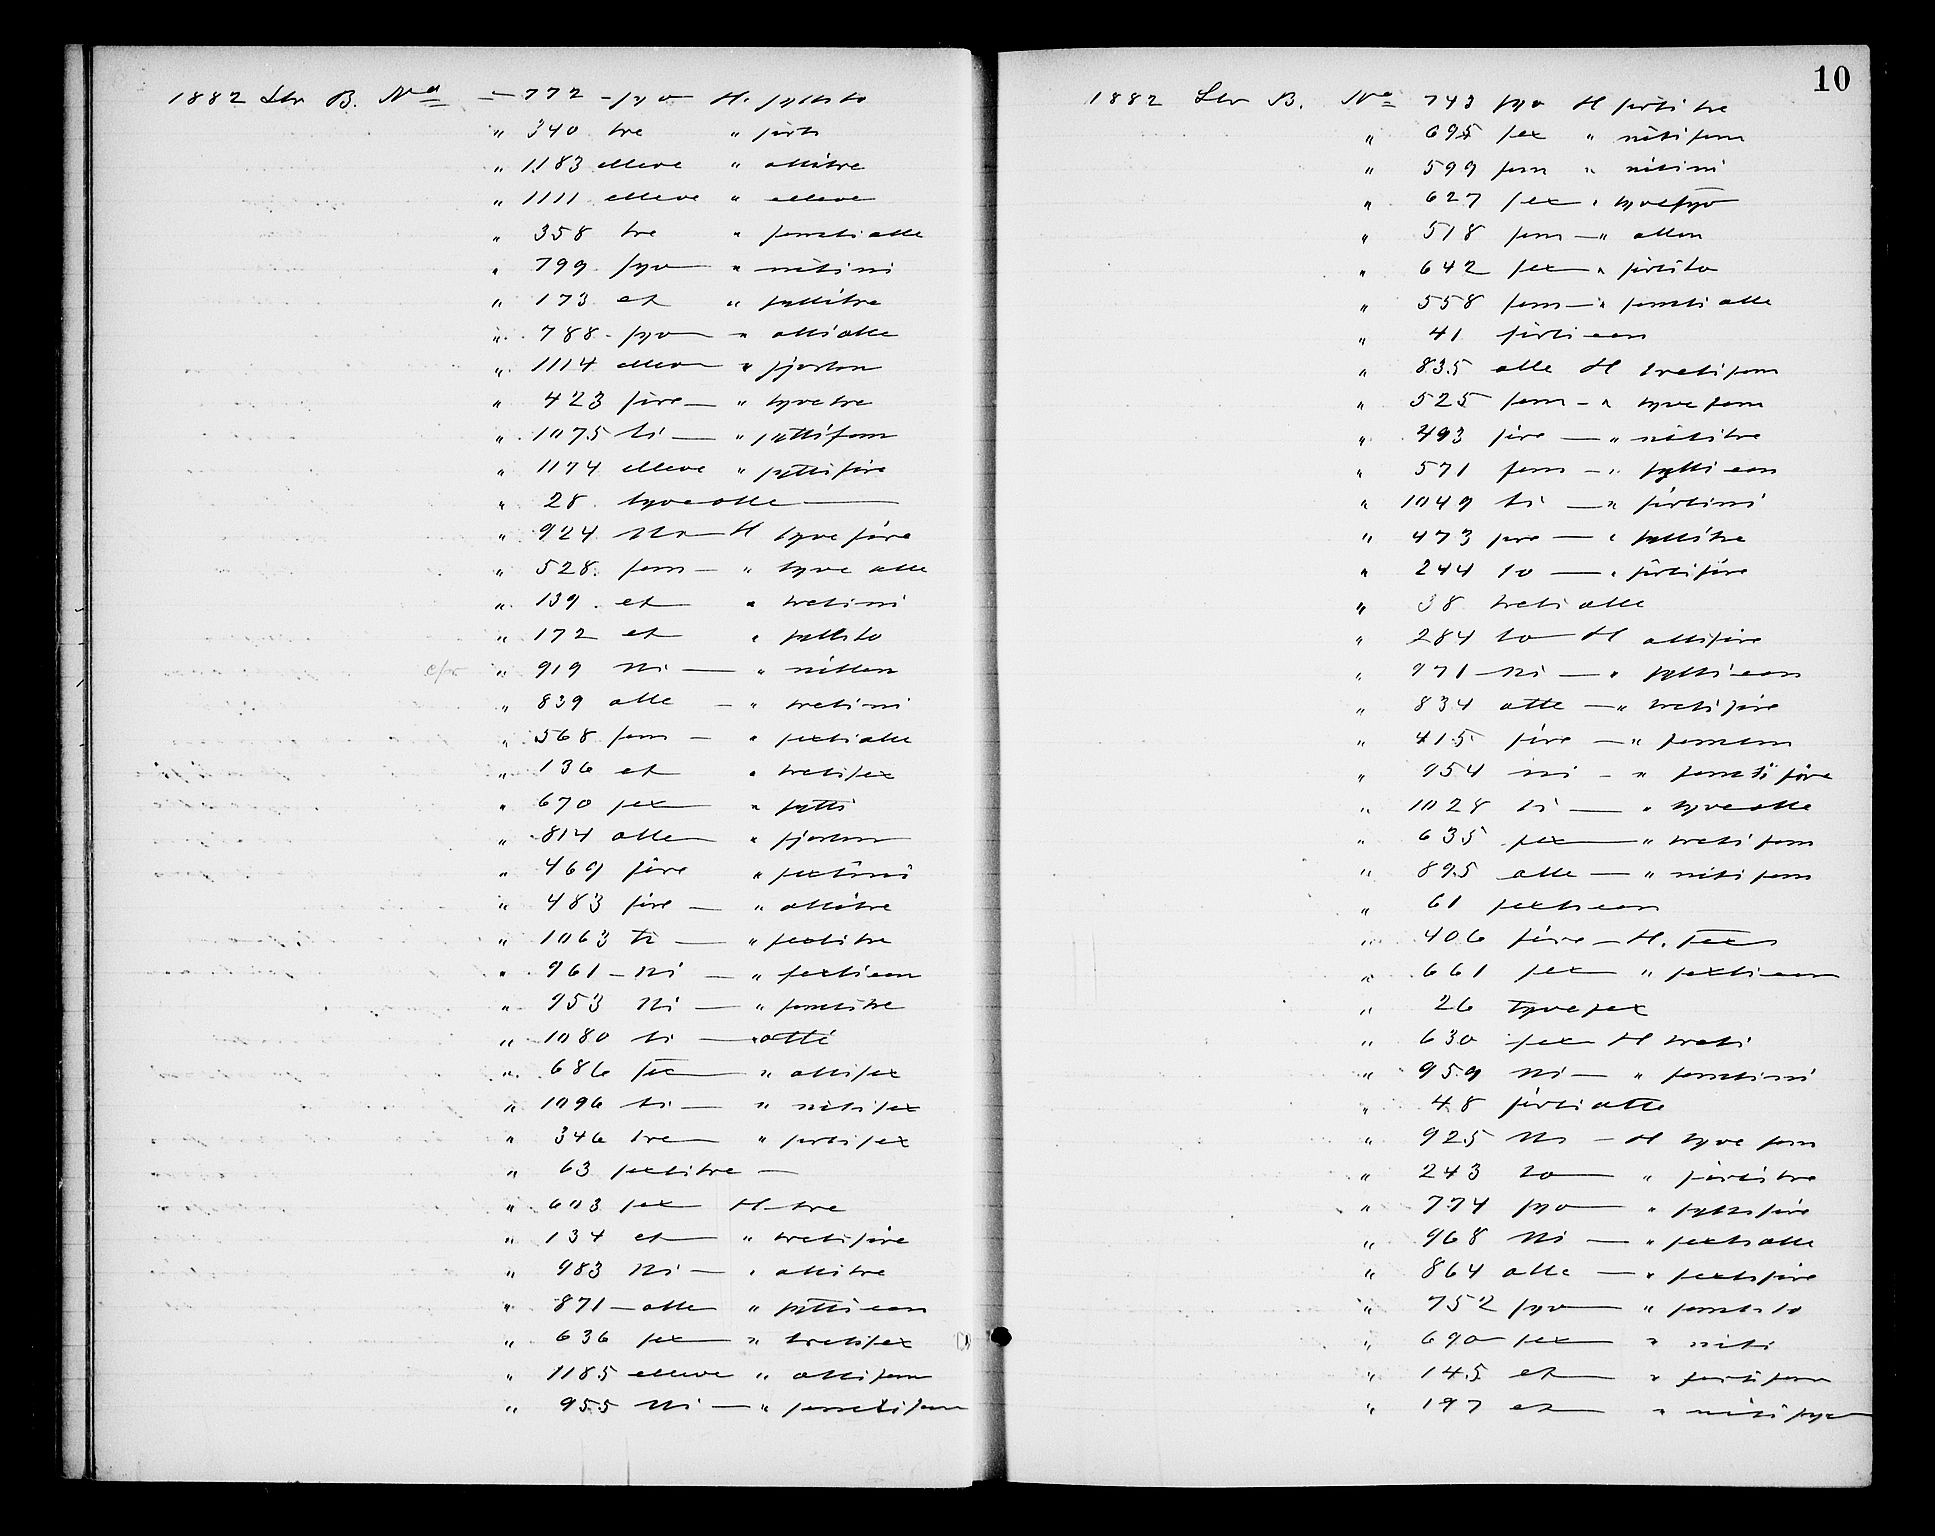 1882 Ltr B. No — 772 - syv H. sytti to
" 340 tre " førti
" 1183 elleve " åttitre
" 1111 elleve " elleve
" 358 tre " femti atte
" 799 syv — " nitini
" 173 et " syttitre
" 788 - syv — " atti atte
" 1114 elleve " fjorten
" 423 fire — " tyvetre
" 1075 ti — " syttifem
" 1174 elleve " syttifire
" 28 tyveatte —
" 924 Ni — H tyve fire
" 528 fem — " tyve atte
" 139 et " tretini
" 172 et " sytti to
c/r " 919 Ni — " nitten
" 839 atte — " tretini
" 568 fem — " sextiatte
" 136 et " tretisex
" 670 sex " sytti
" 814 atte " fjorten
" 469 fire " sextini
" 483 fire — " attitre
" 1063 ti — " sextitre
" 961 - Ni — " sextieen
" 953 Ni — " femtitre
" 1080 ti — " atti
" 686 sex " attisex
" 1096 ti — " nitisex
" 346 tre " førtisex
" 63 sextitre —
" 603 sex H tre
" 134 et " tretifire
" 983 Ni — " attitre
" 871 — atte " syttieen
" 636 sex " tretisex
" 1185 elleve " attifem
" 955 Ni — " femtifem
10
1882 Ltr B. No 743 syv H førti tre
" 695 sex " nitifem
" 599 fem " nitini
" 627 sex " tyvesyv
" 518 fem — " atten
" 642 sex — " førtito
" 558 fem — " femti atte
" 41 førti een
" 835 atte H tretifem
" 525 fem — " tyve fem
" 493 fire — " nititre
" 571 fem — " sytti een
" 1049 ti — " førtini
" 473 fire — " syttitre
" 244 to — " førtifire
" 38 treti atte
" 284 to — H attifire
" 971 — Ni — " sytti een
" 834 atte — " tretifire
" 415 fire — " femten
" 954 ni — " femti fire
" 1028 ti — " tyveatte
" 635 sex — " treti fem
" 895 atte — " niti fem
" 61 sextieen
" 406 fire — H. sex
" 661 sex " sextieen
" 26 Tyvesex
" 630 sex H treti
" 959 Ni — " femtini
" 48 førtiatte
" 925 Ni — H tyve fem
" 243 to — " førtitre
" 774 syv — " syttifire
" 968 Ni — " sextiatte
" 864 atte — " sextifire
" 752 syv — " femti to
" 690 — sex — " niti
" 145 et — " førtifem
" 197 et — " nitisyv